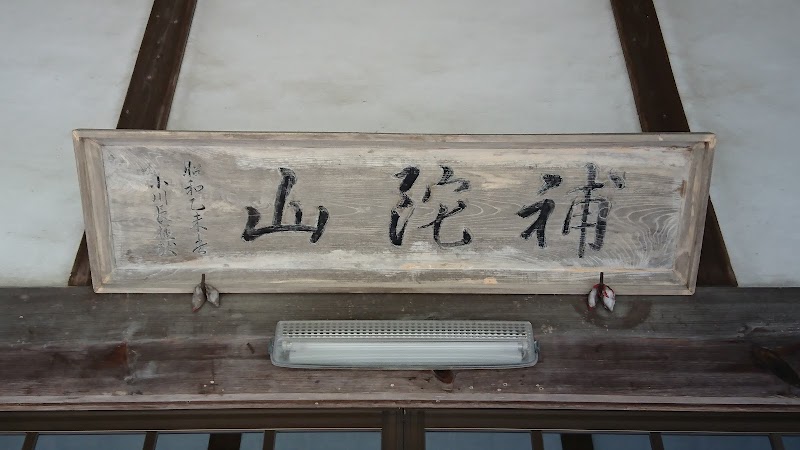 補陀山
昭和乙未春
小川